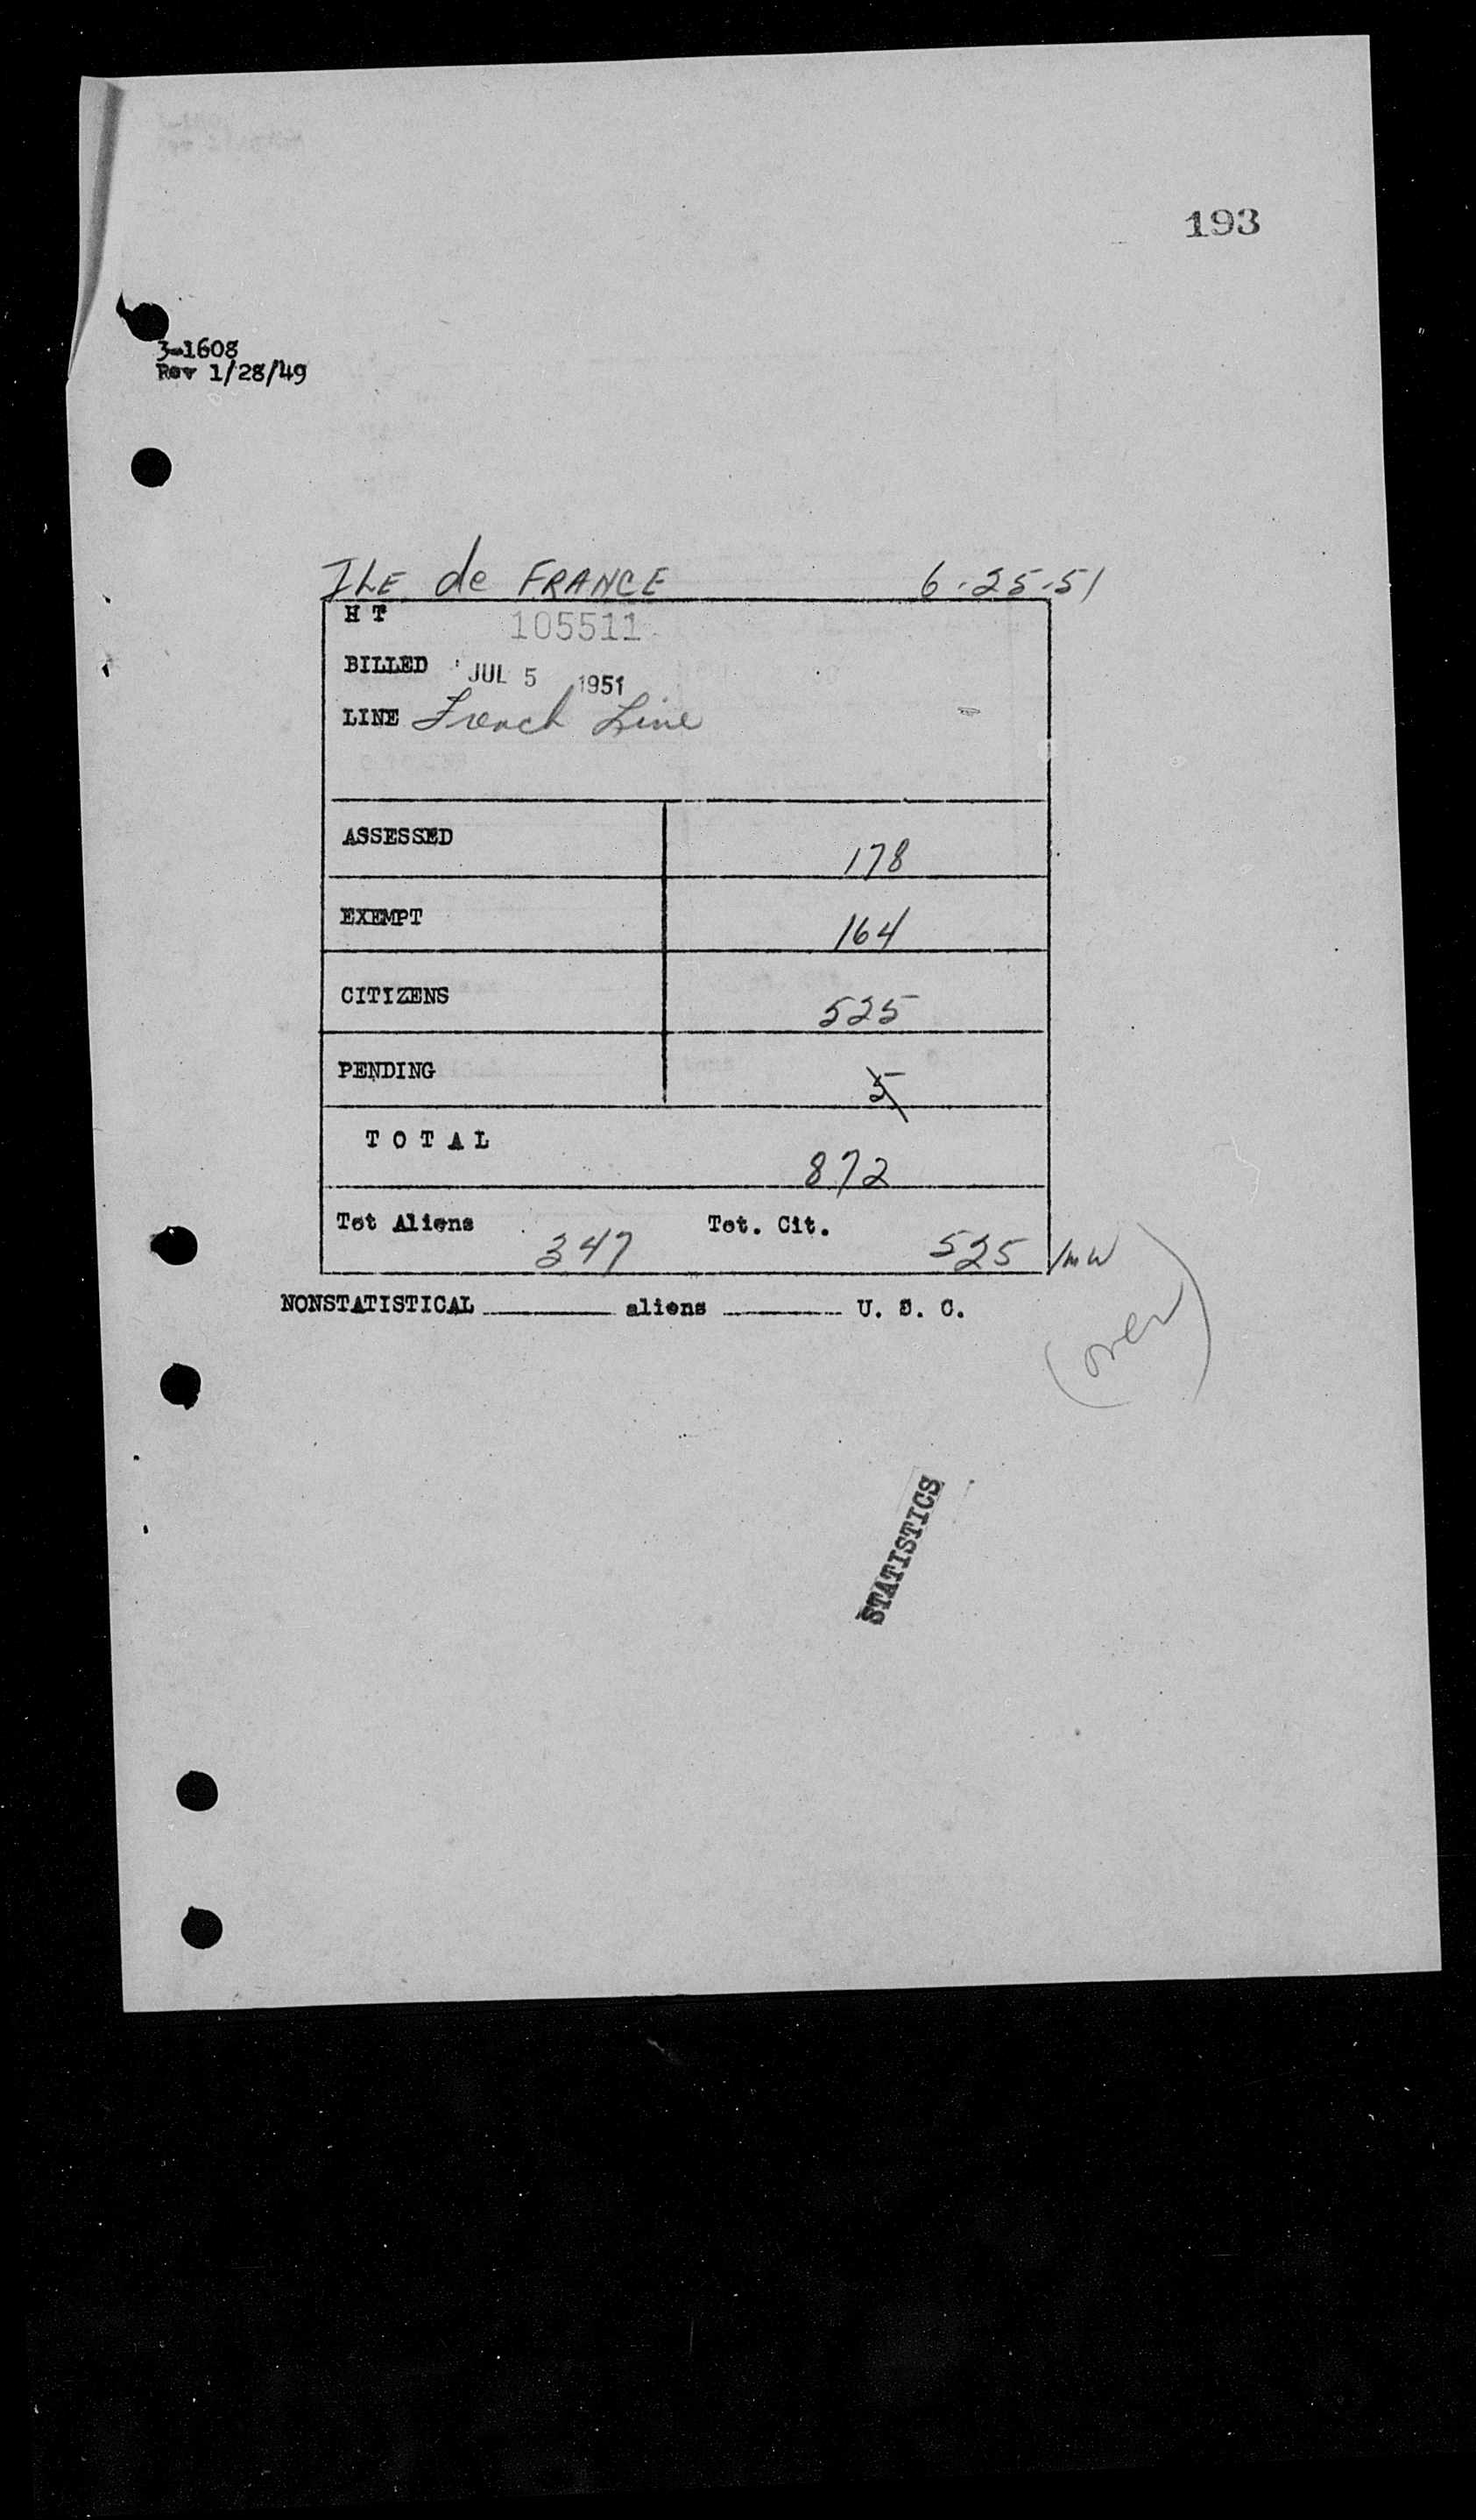 193
3-1608
Rev 1/28/49
ILE de FRANCE 6-25-51
H T 105511
BILLED JUL 5 1951
LINE French Line
ASSESSED 178
EXEMPT 164
CITIZENS 525
PENDING 5
TOTAL 872
Tot Aliens 347 Tot. Cit. 525 /mw
NONSTATISTICAL aliens U. S. C.
(over)
STATISTICS